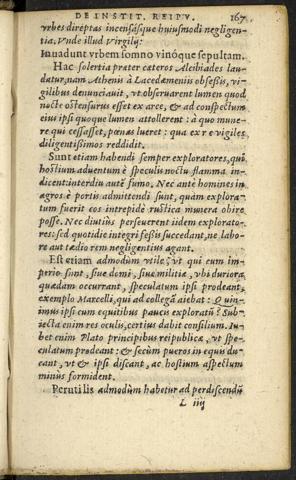 DE INSTIT. REIPV. 167
vrbes direptas incensásque huiusmodi negligen
tia. Vnde illud Virgilij:
Inuadunt vrbem somno vinóque sepultam.
Hac solertia præter cæteros Alcibiades lau
datur, nam Athenis à Lacedæmoniis obseßis, vi
gilibus denunciauit, vt obseruarent lumen quod
nocte ostensurus esset ex arce, & ad conspectum
eius ipsi quoque lumen attollerent: à quo mune
re qui cessasset, pœnas lueret: qua ex re vigiles
diligentißimos reddidit.
Sunt etiam habendi semper exploratores, qui
hostium aduentum è speculis noctu flamma in
dicent: interdiu autē fumo. Nec antè homines in
agros è portis admittendi sunt, quàm explora-
tum fuerit eos intrepidè rustica munera obire
posse. Nec diutiùs perseuerent iidem explorato-
res: sed quotidie integri feßis succedant, ne labo-
re aut tædio rem negligentius agant.
Est etiam admodùm vtile, vt qui cum im-
perio sunt, siue domi, siue militiæ, vbi duriora
quædam occurrant, speculatum ipsi prodeant,
exemplo Marcelli, qui ad collegā aiebat: Quin-
imus ipsi cum equitibus paucis exploratū? Sub-
iecta enim res oculis, certius dabit consilium. Iu-
bet enim Plato principibus reipublicæ, vt spe-
culatum prodeant: & secùm pueros in equis du-
cant, vt & ipsi discant, ac hostium aspectum
minùs formident.
Perutilis admodùm habetur ad perdiscendū
L iiij